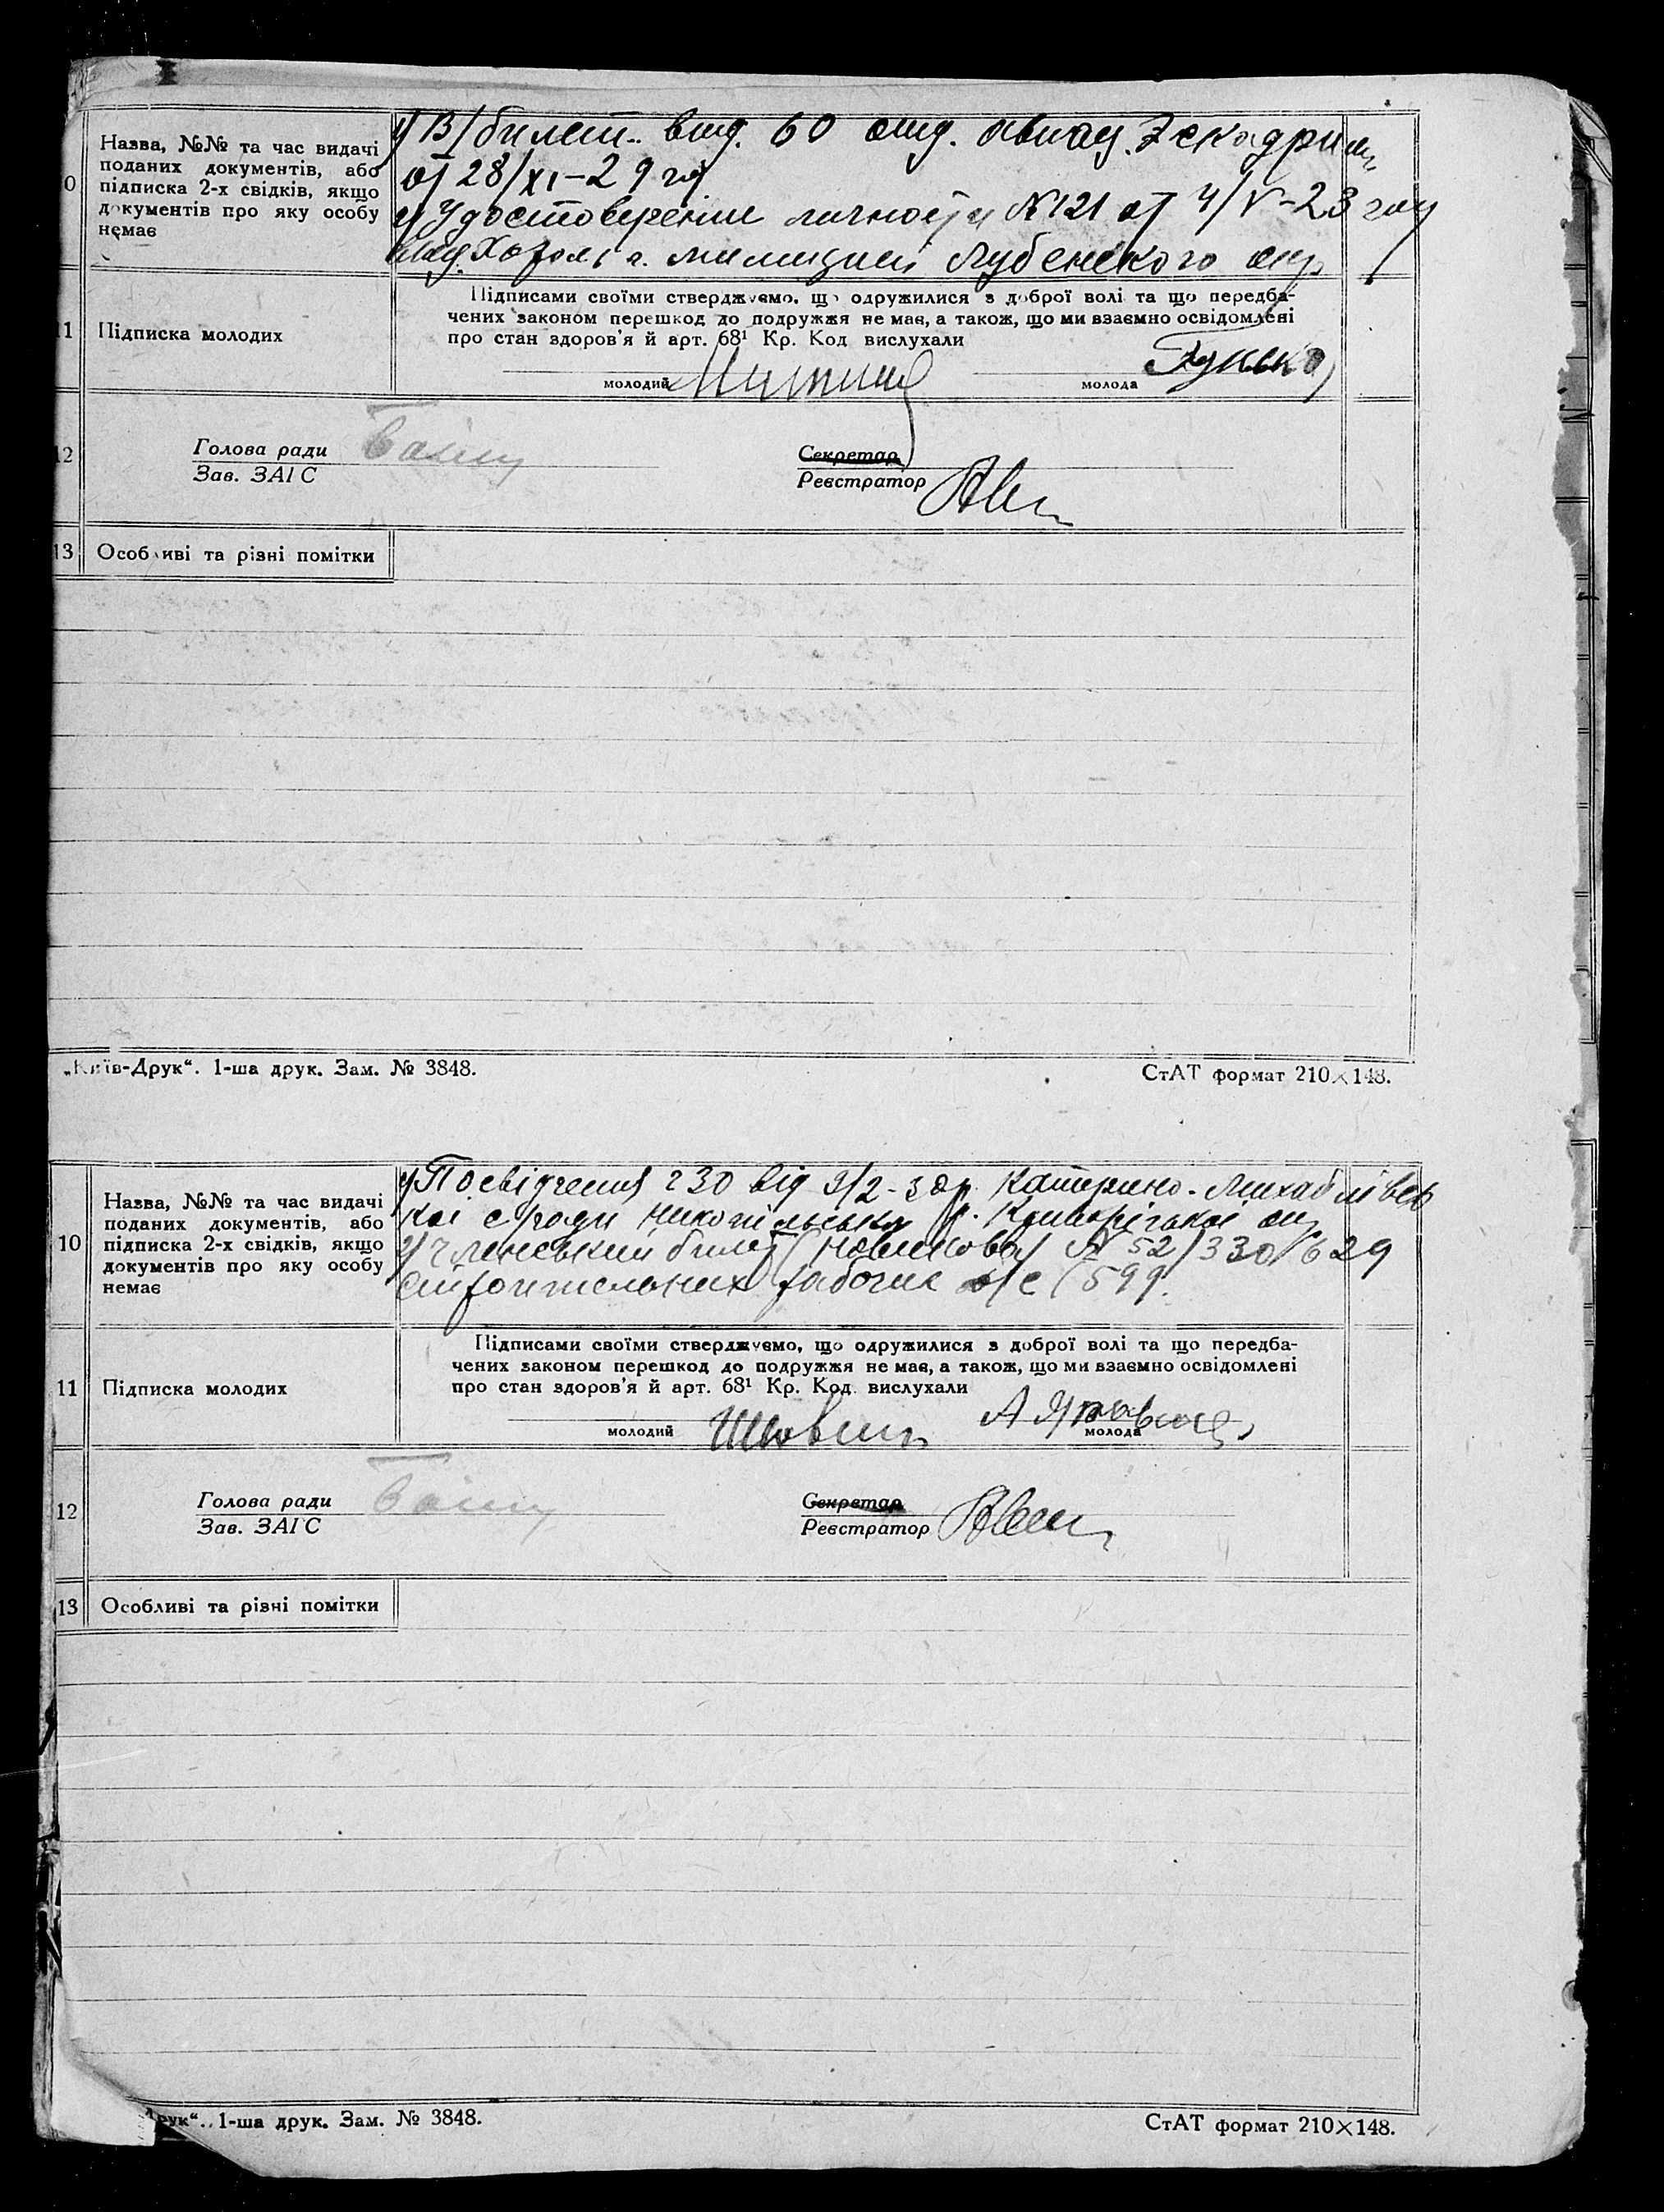 10 Назва, №№ та час видачі
поданих документів, або
підписка 2-х свідків, якщо
документів про яку особу
немає
1) В/билет. выд. 60 отд. авиац. Эскадрилии
от 28/XI-29 г.
2) Удостоверение личности №121 от 4/V-23 году
выд. Хорольск. милицией Лубенского окр.
11 Підписка молодих
Підписами своїми стверджуємо, що одружилися з доброї волі та що передба-
чених законом перешкод до подружжя не має, а також, що ми взаємно освідомлені
про стан здоров'я й арт. 68¹ Кр. Код вислухали
молодий
молода Гунько
12 Голова ради
Зав. ЗАГС
Секретар
Реєстратор
13 Особливі та різні помітки
„Київ-Друк“. 1-ша друк. Зам. № 3848.
СтАТ формат 210×148.
10 Назва, №№ та час видачі
поданих документів, або
підписка 2-х свідків, якщо
документів про яку особу
немає
1) Посвідчення ч 30 від 9/2-30р. Катерино-Михайлівсь
кої с/ради Никопільськ р. Криворізької окр
2) Членський билет (новиковой) № 52/330/629
строительных рабочих 599.
11 Підписка молодих
Підписами своїми стверджуємо, що одружилися з доброї волі та що передба-
чених законом перешкод до подружжя не має, а також, що ми взаємно освідомлені
про стан здоров'я й арт. 68¹ Кр. Код вислухали
молодий
молода
12 Голова ради
Зав. ЗАГС
Секретар
Реєстратор
13 Особливі та різні помітки
Друк“. 1-ша друк. Зам. № 3848.
СтАТ формат 210×148.